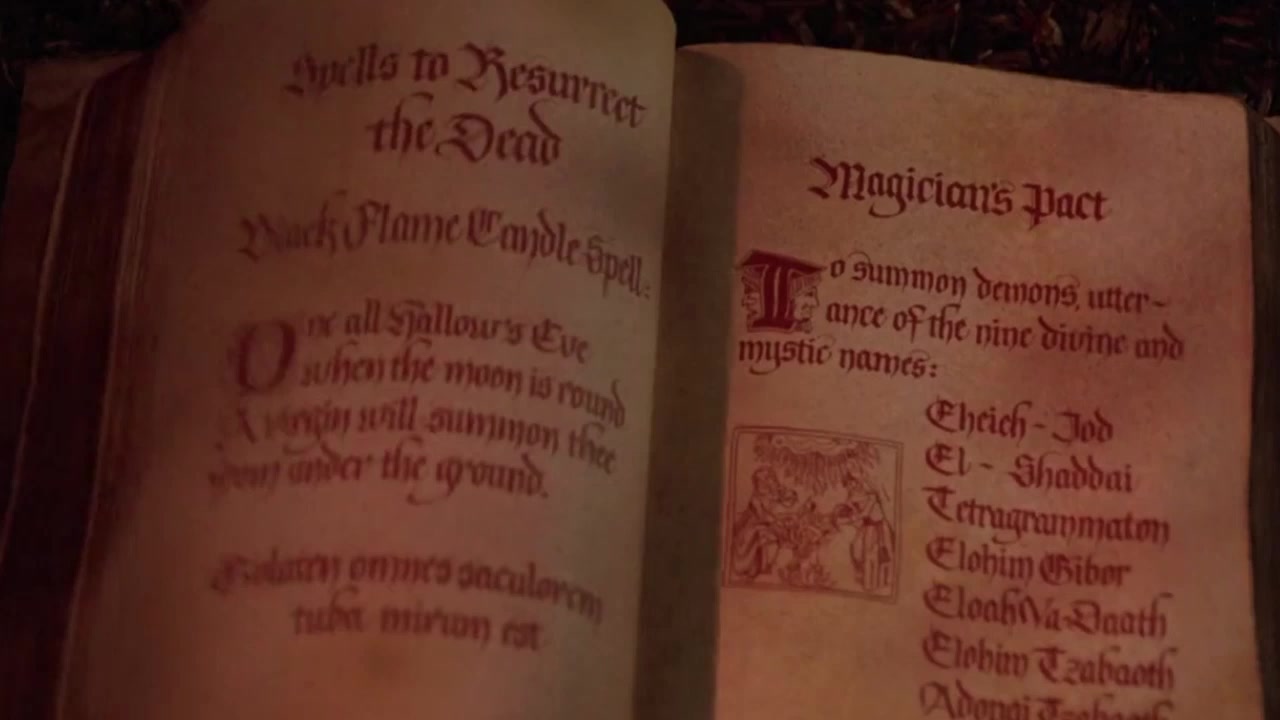 Spells to Resurrect
the Dead
Black Flame Candle Spell:
One all Hallow's Eve
when the moon is round
A virgin will summon thee
under the ground.
omnes saculorem
tuba mirum est
Magician's Pact
To summon demons, utter-
ance of the nine divine and
mystic names:
Eheieh - Jod
El - Shaddai
Tetragrammaton
Elohim Gibor
Eloah Va-Daath
Elohim Tzabaoth
Adonai Tzabaoth